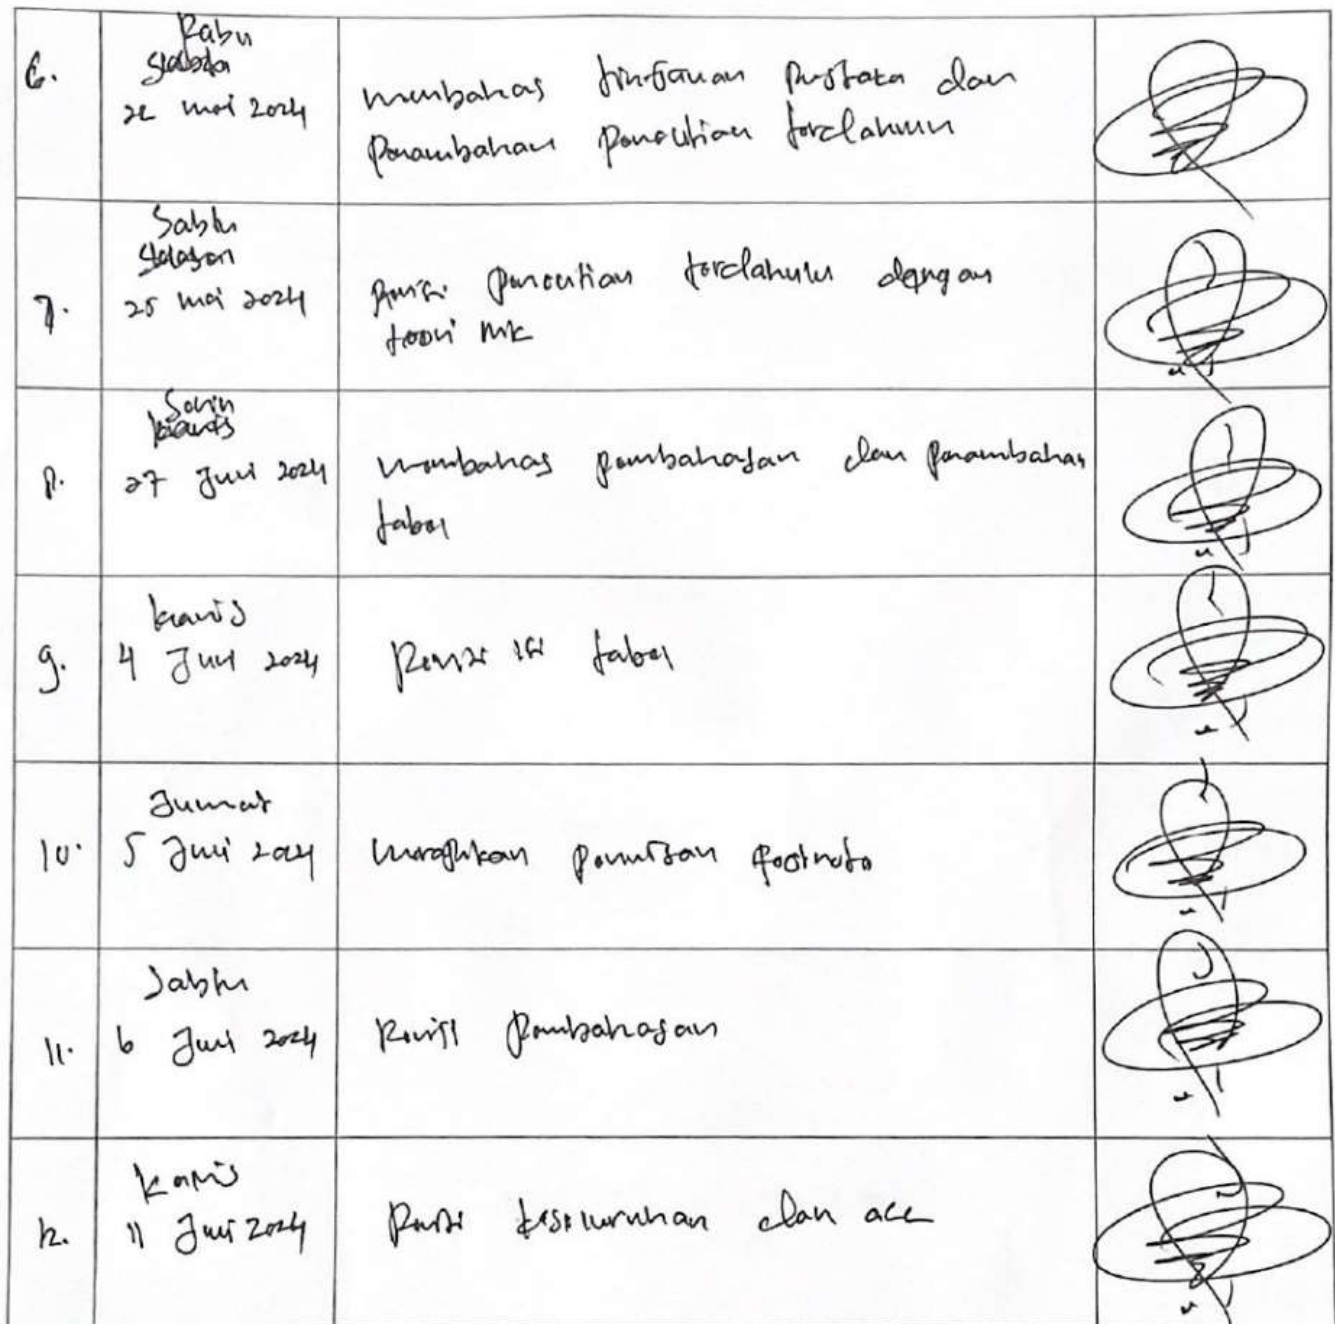 6.
Rabu
22 Mei 2024
membahas tinjauan pustaka dan
penambahan penelitian terdahulu
7.
Sabtu
25 Mei 2024
Revisi penelitian terdahulu dengan
teori
8.
Senin
27 Juni 2024
membahas pembahasan dan penambahan
tabel
9.
Kamis
4 Juli 2024
Revisi isi tabel
10.
Jumat
5 Juli 2024
penulisan footnote
11.
Sabtu
6 Juli 2024
Revisi Pembahasan
12.
Kamis
11 Juli 2024
Revisi keseluruhan dan acc